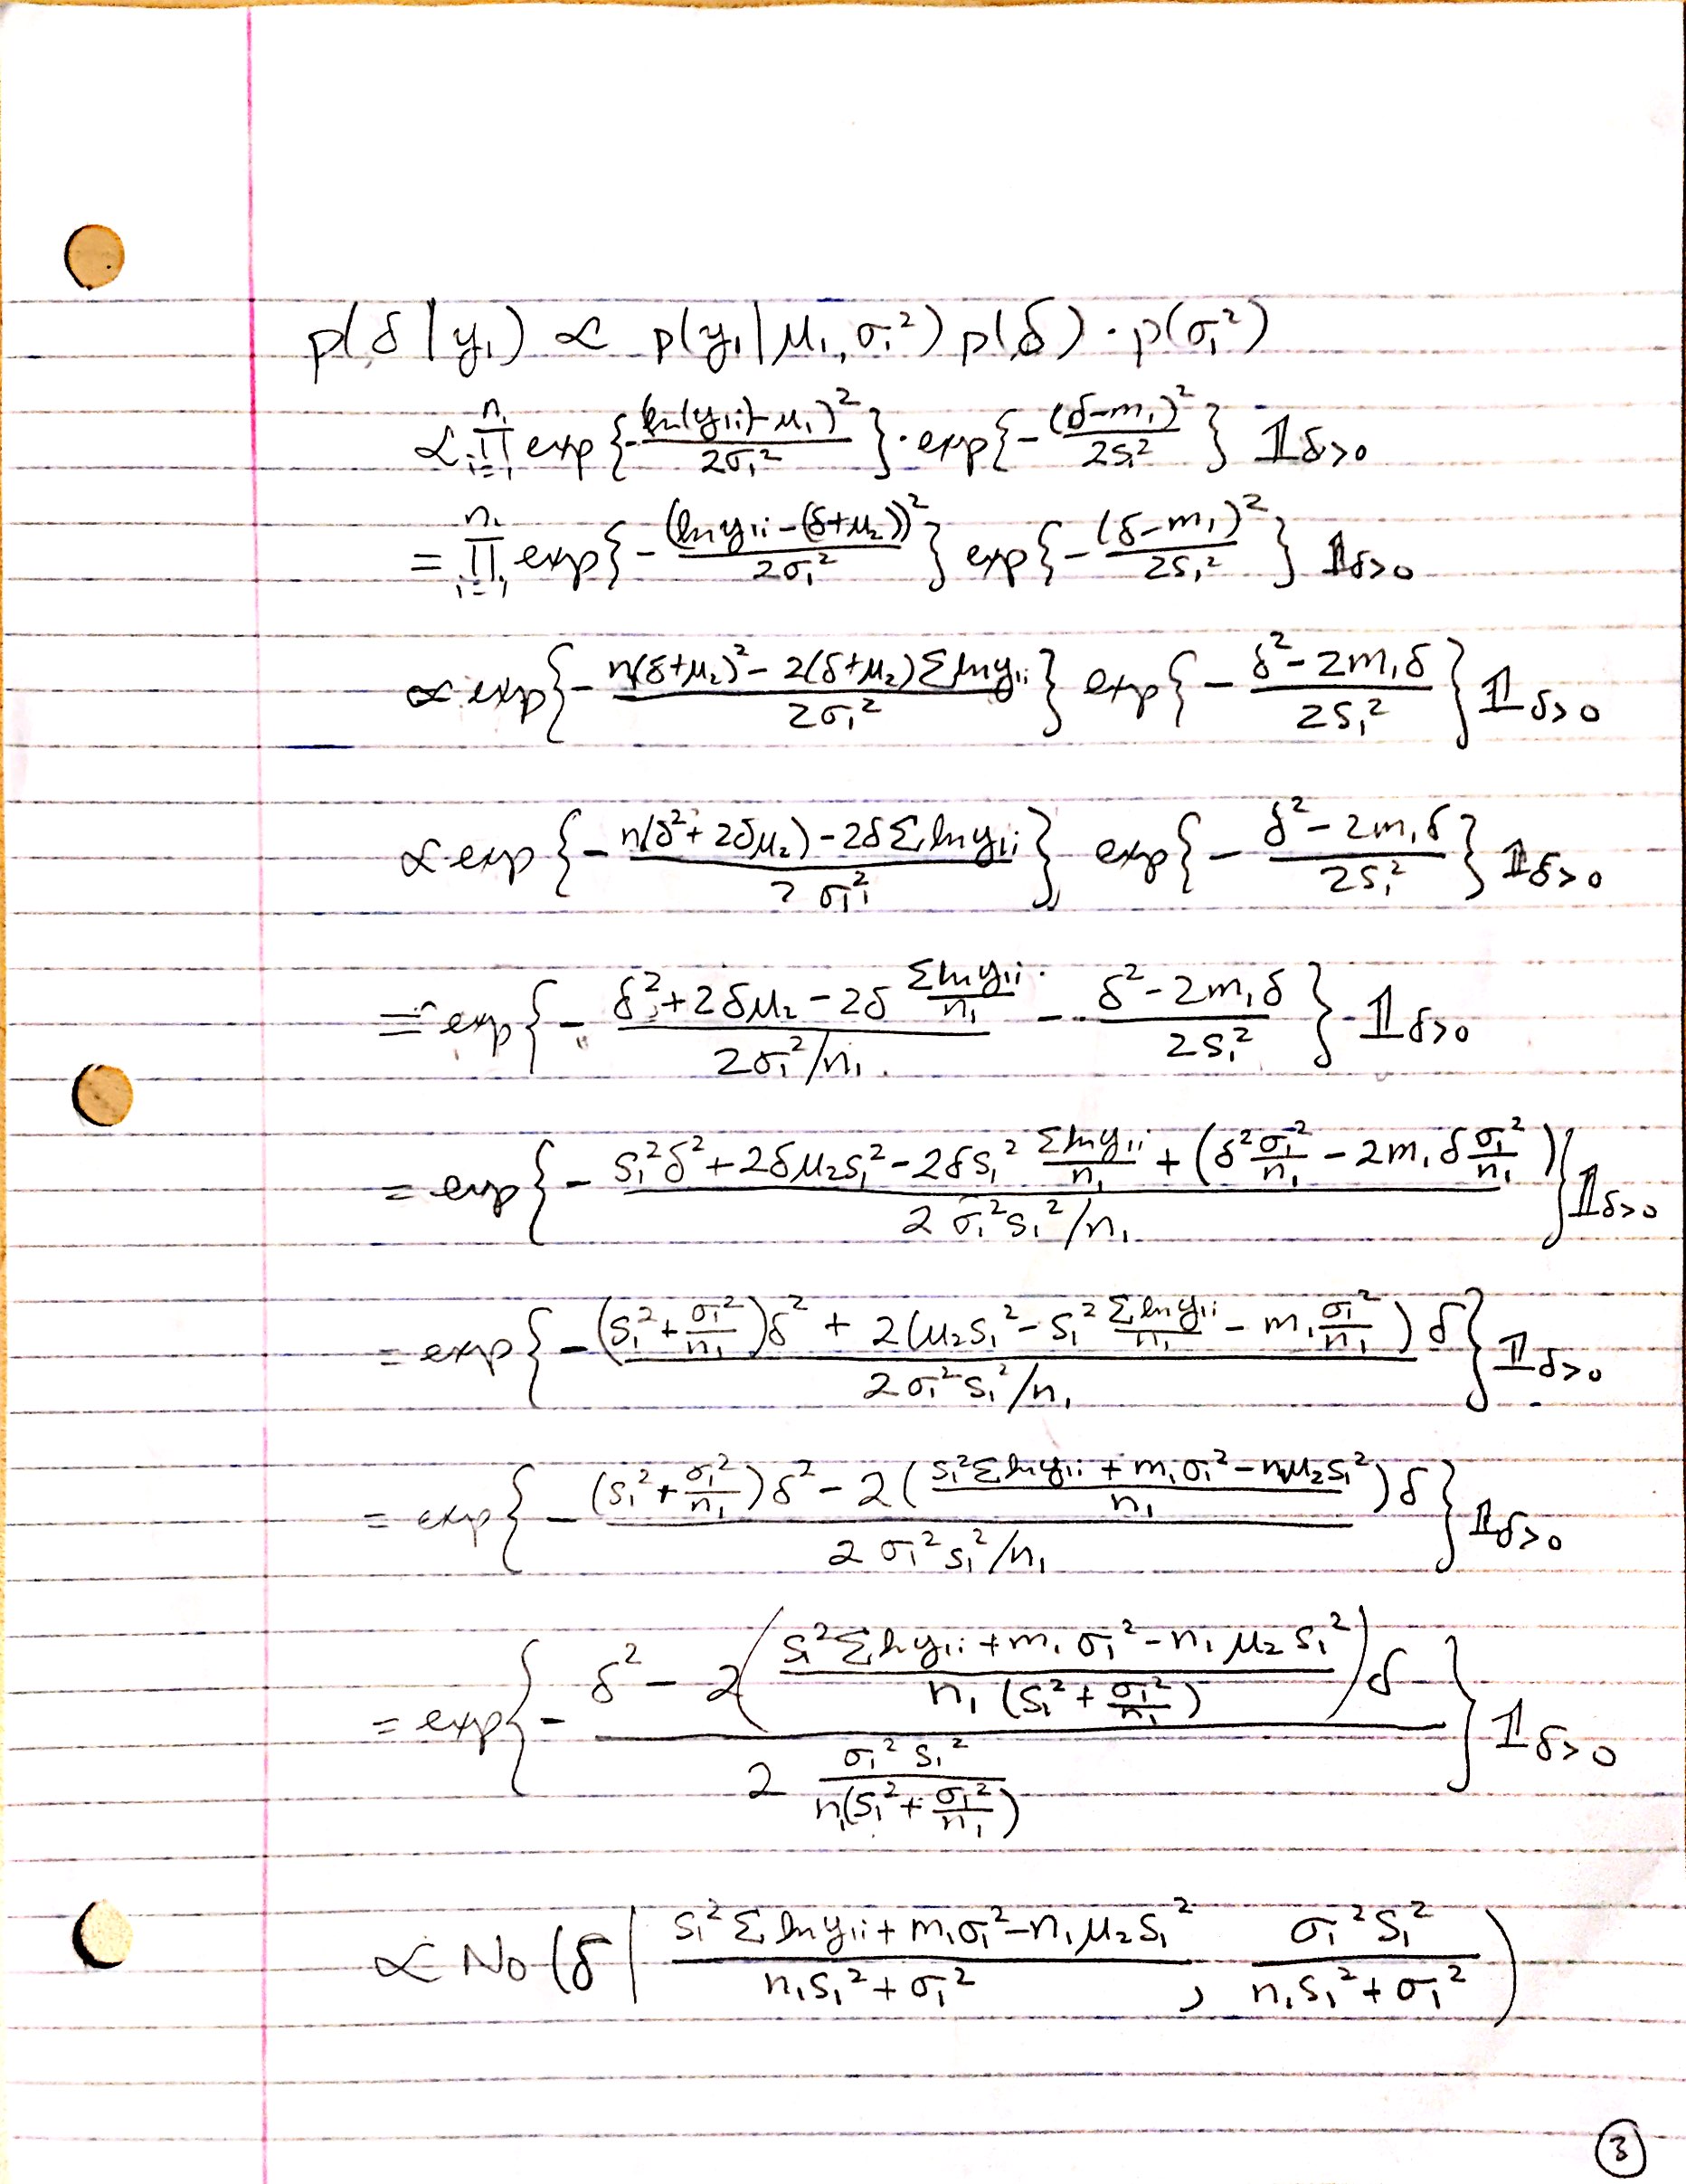 p(δ | y₁) ∝ p(y₁ | μ₁, σ₁²) p(δ) · p(σ₁²)
∝ ∏_{i=1}^{n₁} exp{-(ln(y₁ᵢ)-μ₁)²/2σ₁²} · exp{-(δ-m₁)²/2s₁²} 𝟙_{δ>0}
= ∏_{i=1}^{n₁} exp{-(ln y₁ᵢ-(δ+μ₂))²/2σ₁²} exp{-(δ-m₁)²/2s₁²} 𝟙_{δ>0}
∝ exp{-(n(δ+μ₂)²-2(δ+μ₂)Σ ln y₁ᵢ)/2σ₁²} exp{-(δ²-2m₁δ)/2s₁²} 𝟙_{δ>0}
∝ exp{-(n(δ²+2δμ₂)-2δΣ ln y₁ᵢ)/2σ₁²} exp{-(δ²-2m₁δ)/2s₁²} 𝟙_{δ>0}
= exp{-(δ²+2δμ₂-2δ (Σ ln y₁ᵢ)/n₁)/(2σ₁²/n₁) - (δ²-2m₁δ)/2s₁²} 𝟙_{δ>0}
= exp{-(s₁²δ²+2δμ₂s₁²-2δs₁² (Σ ln y₁ᵢ)/n₁ + (δ² σ₁²/n₁ - 2m₁δ σ₁²/n₁))/(2σ₁²s₁²/n₁)} 𝟙_{δ>0}
= exp{-((s₁²+σ₁²/n₁)δ² + 2(μ₂s₁²-s₁² (Σ ln y₁ᵢ)/n₁ - m₁ σ₁²/n₁)δ)/(2σ₁²s₁²/n₁)} 𝟙_{δ>0}
= exp{-((s₁²+σ₁²/n₁)δ² - 2((s₁²Σ ln y₁ᵢ + m₁σ₁²-n₁μ₂s₁²)/n₁)δ)/(2σ₁²s₁²/n₁)} 𝟙_{δ>0}
= exp{-(δ² - 2((s₁²Σ ln y₁ᵢ+m₁σ₁²-n₁μ₂s₁²)/(n₁(s₁²+σ₁²/n₁)))δ)/(2 σ₁²s₁²/(n₁(s₁²+σ₁²/n₁)))} 𝟙_{δ>0}
∝ No(δ | (s₁²Σ ln y₁ᵢ+m₁σ₁²-n₁μ₂s₁²)/(n₁s₁²+σ₁²), σ₁²s₁²/(n₁s₁²+σ₁²))
3